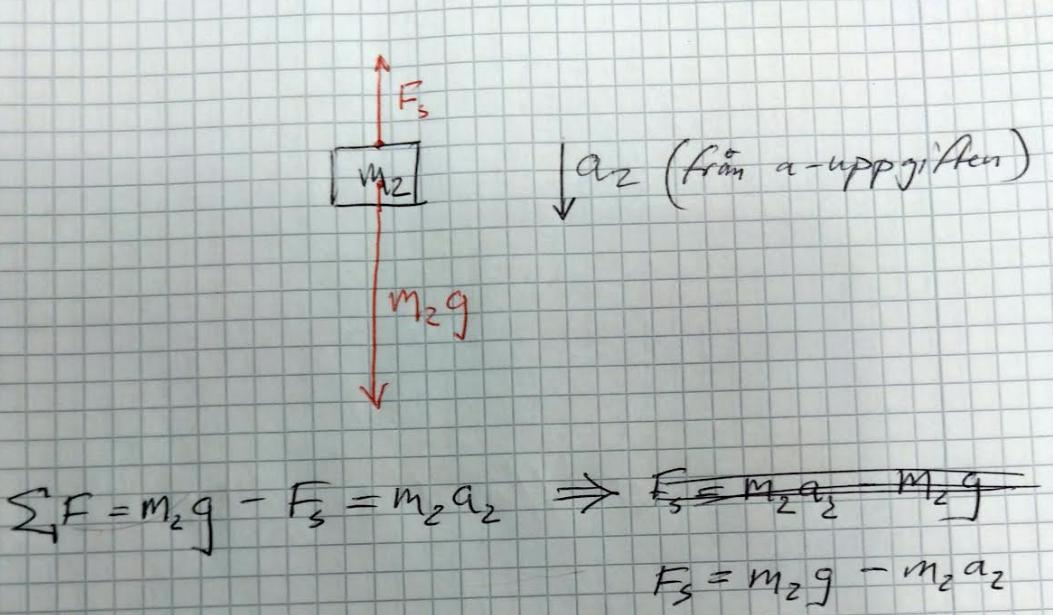 F_s
m_2
a_2 (från a-uppgiften)
m_2 g
∑F = m_2 g - F_s = m_2 a_2 ⇒ F_s = m_2 a_2 - m_2 g
F_s = m_2 g - m_2 a_2